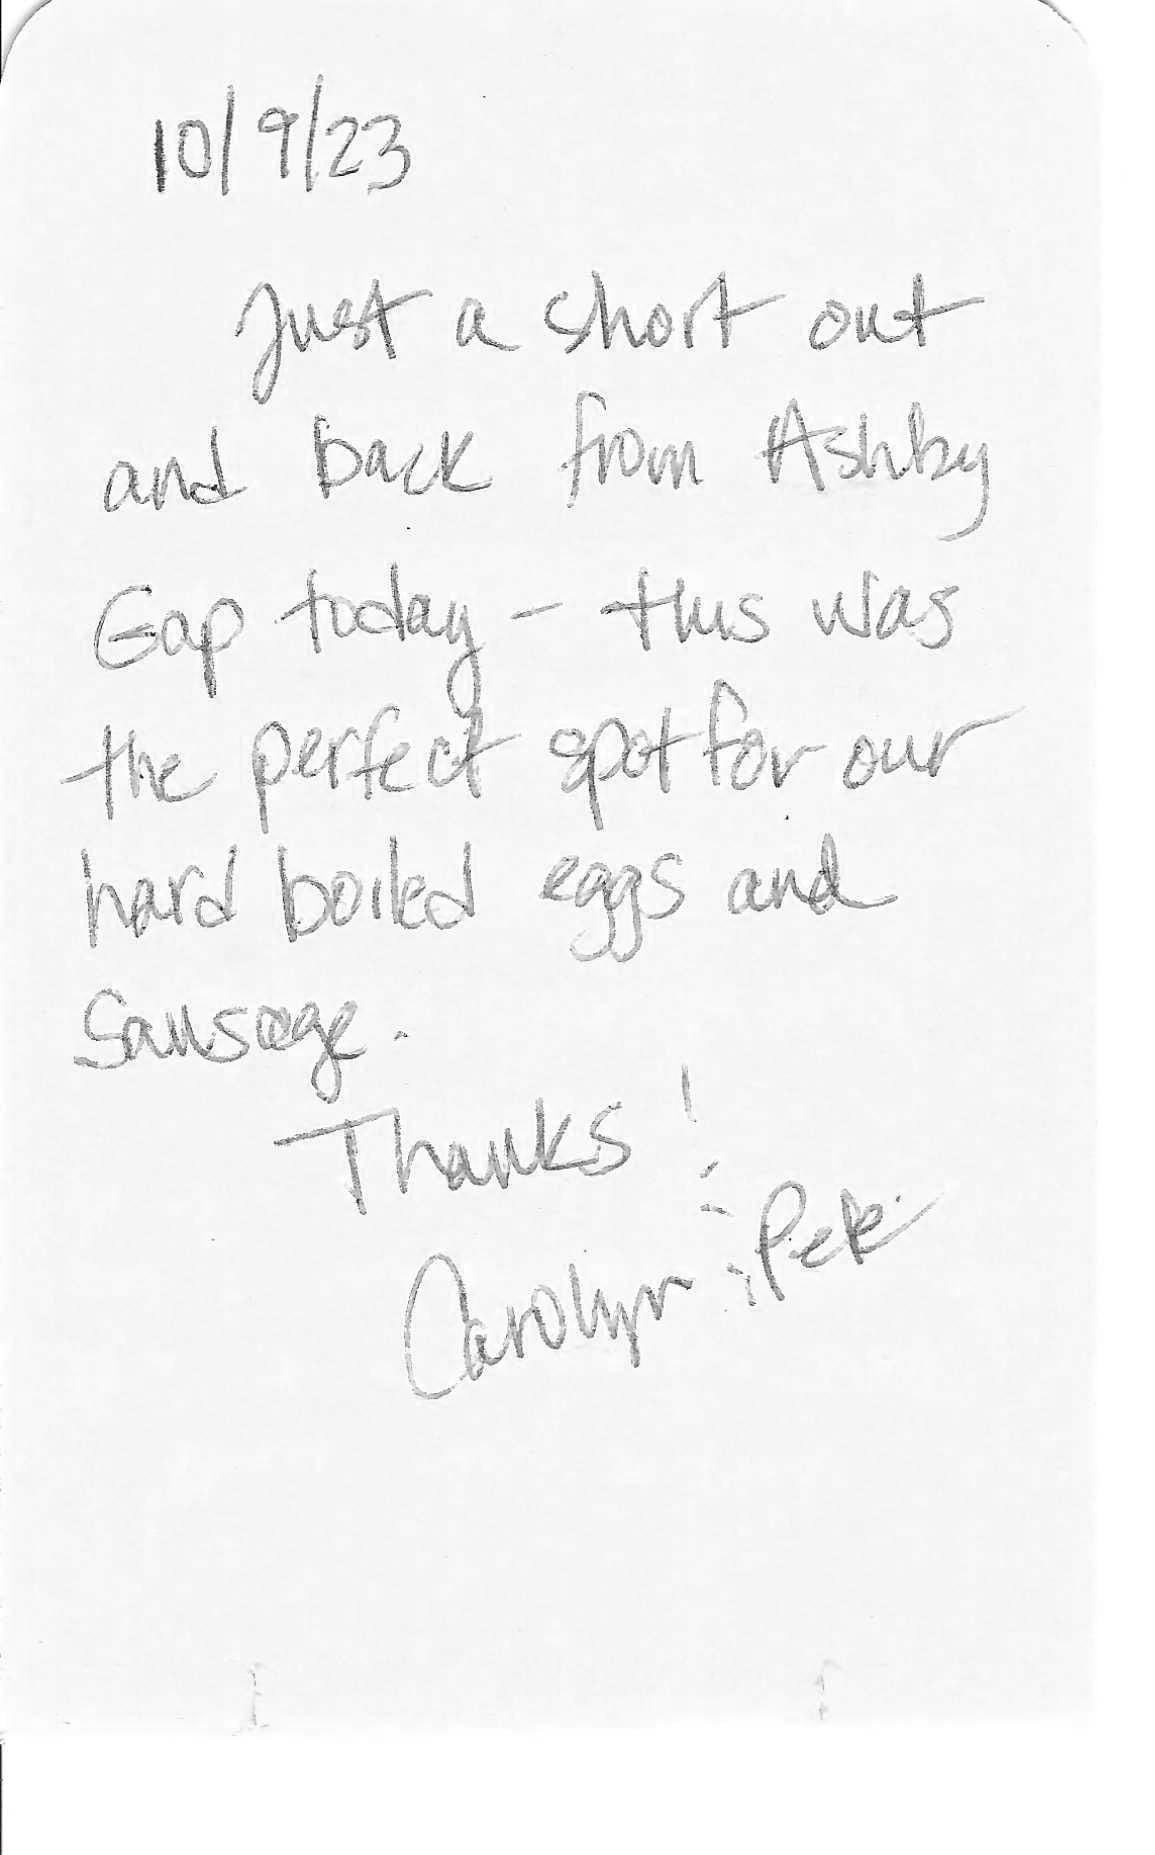 10/9/23
Just a short out
and back from Ashby
Gap today - this was
the perfect spot for our
hard boiled eggs and
Sausage.
Thanks!
Carolyn & Pete